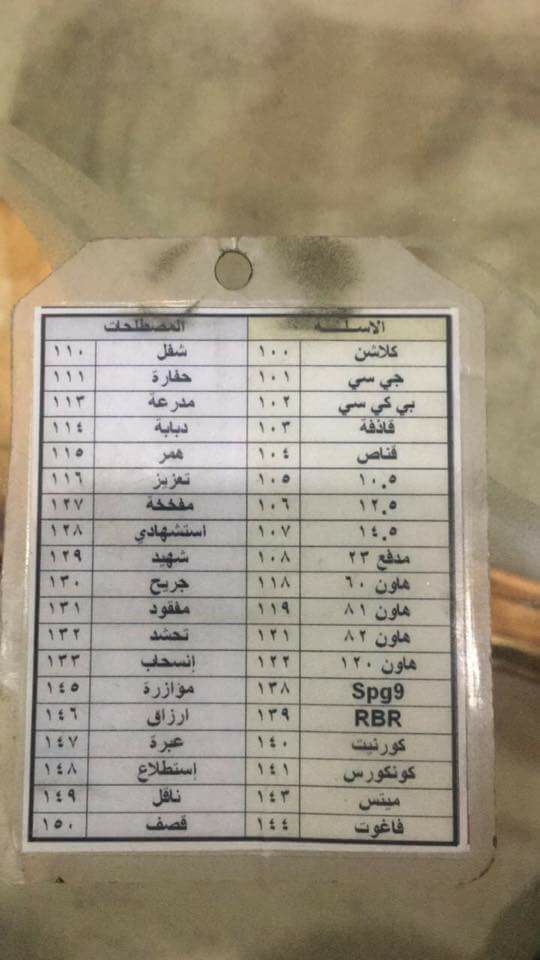 الاسلحة المصطلحات
كلاشن ١٠٠ شفل ١١٠
جي سي ١٠١ حفارة ١١١
بي كي سي ١٠٢ مدرعة ١١٣
قاذفة ١٠٣ دبابة ١١٤
قناص ١٠٤ همر ١١٥
١٠.٥ ١٠٥ تعزيز ١١٦
١٢.٥ ١٠٦ مفخخة ١٢٧
١٤.٥ ١٠٧ استشهادي ١٢٨
مدفع ٢٣ ١٠٨ شهيد ١٢٩
هاون ٦٠ ١١٨ جريح ١٣٠
هاون ٨١ ١١٩ مفقود ١٣١
هاون ٨٢ ١٢١ تحشد ١٣٢
هاون ١٢٠ ١٢٢ إنسحاب ١٣٣
Spg9 ١٣٨ مؤازرة ١٤٥
RBR ١٣٩ ارزاق ١٤٦
كورنيت ١٤٠ عبرة ١٤٧
كونكورس ١٤١ إستطلاع ١٤٨
ميتس ١٤٣ ناقل ١٤٩
فاغوت ١٤٤ قصف ١٥٠